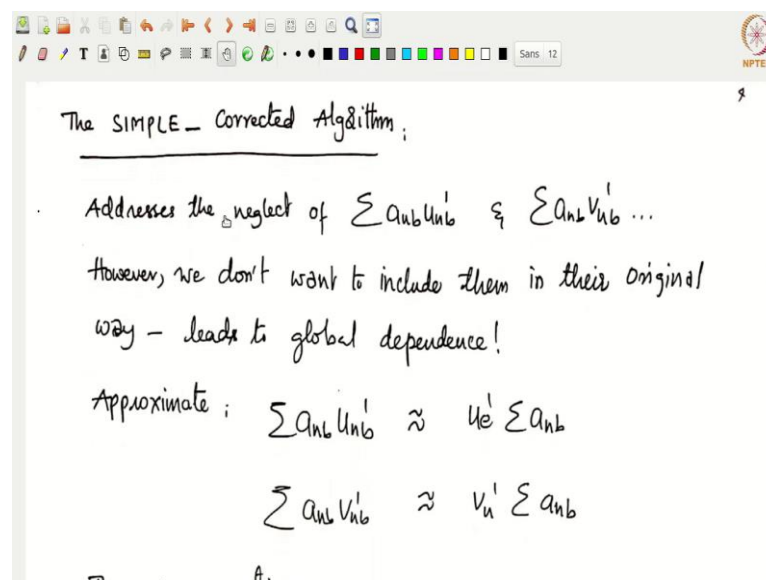 Sans 12
NPTE
The SIMPLE - Corrected Algorithm :
Addresses the neglect of Σ anb u'nb & Σ anb v'nb ...
However, we don't want to include them in their original
way - leads to global dependence!
Approximate : Σ anb u'nb ≈ u'e Σ anb
Σ anb v'nb ≈ v'n Σ anb